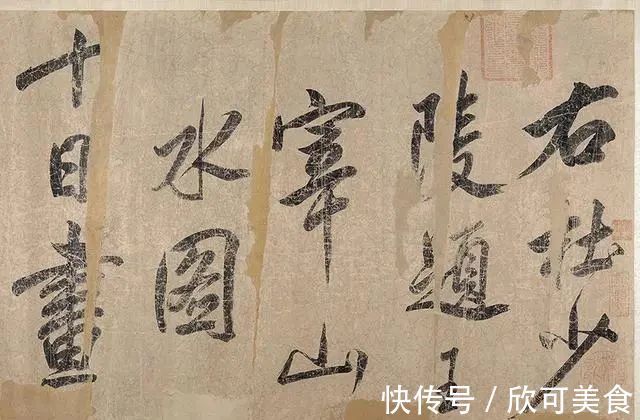 右杜少
陵題王
宰山
水圖
十日畫
快传号 / 欣可美食